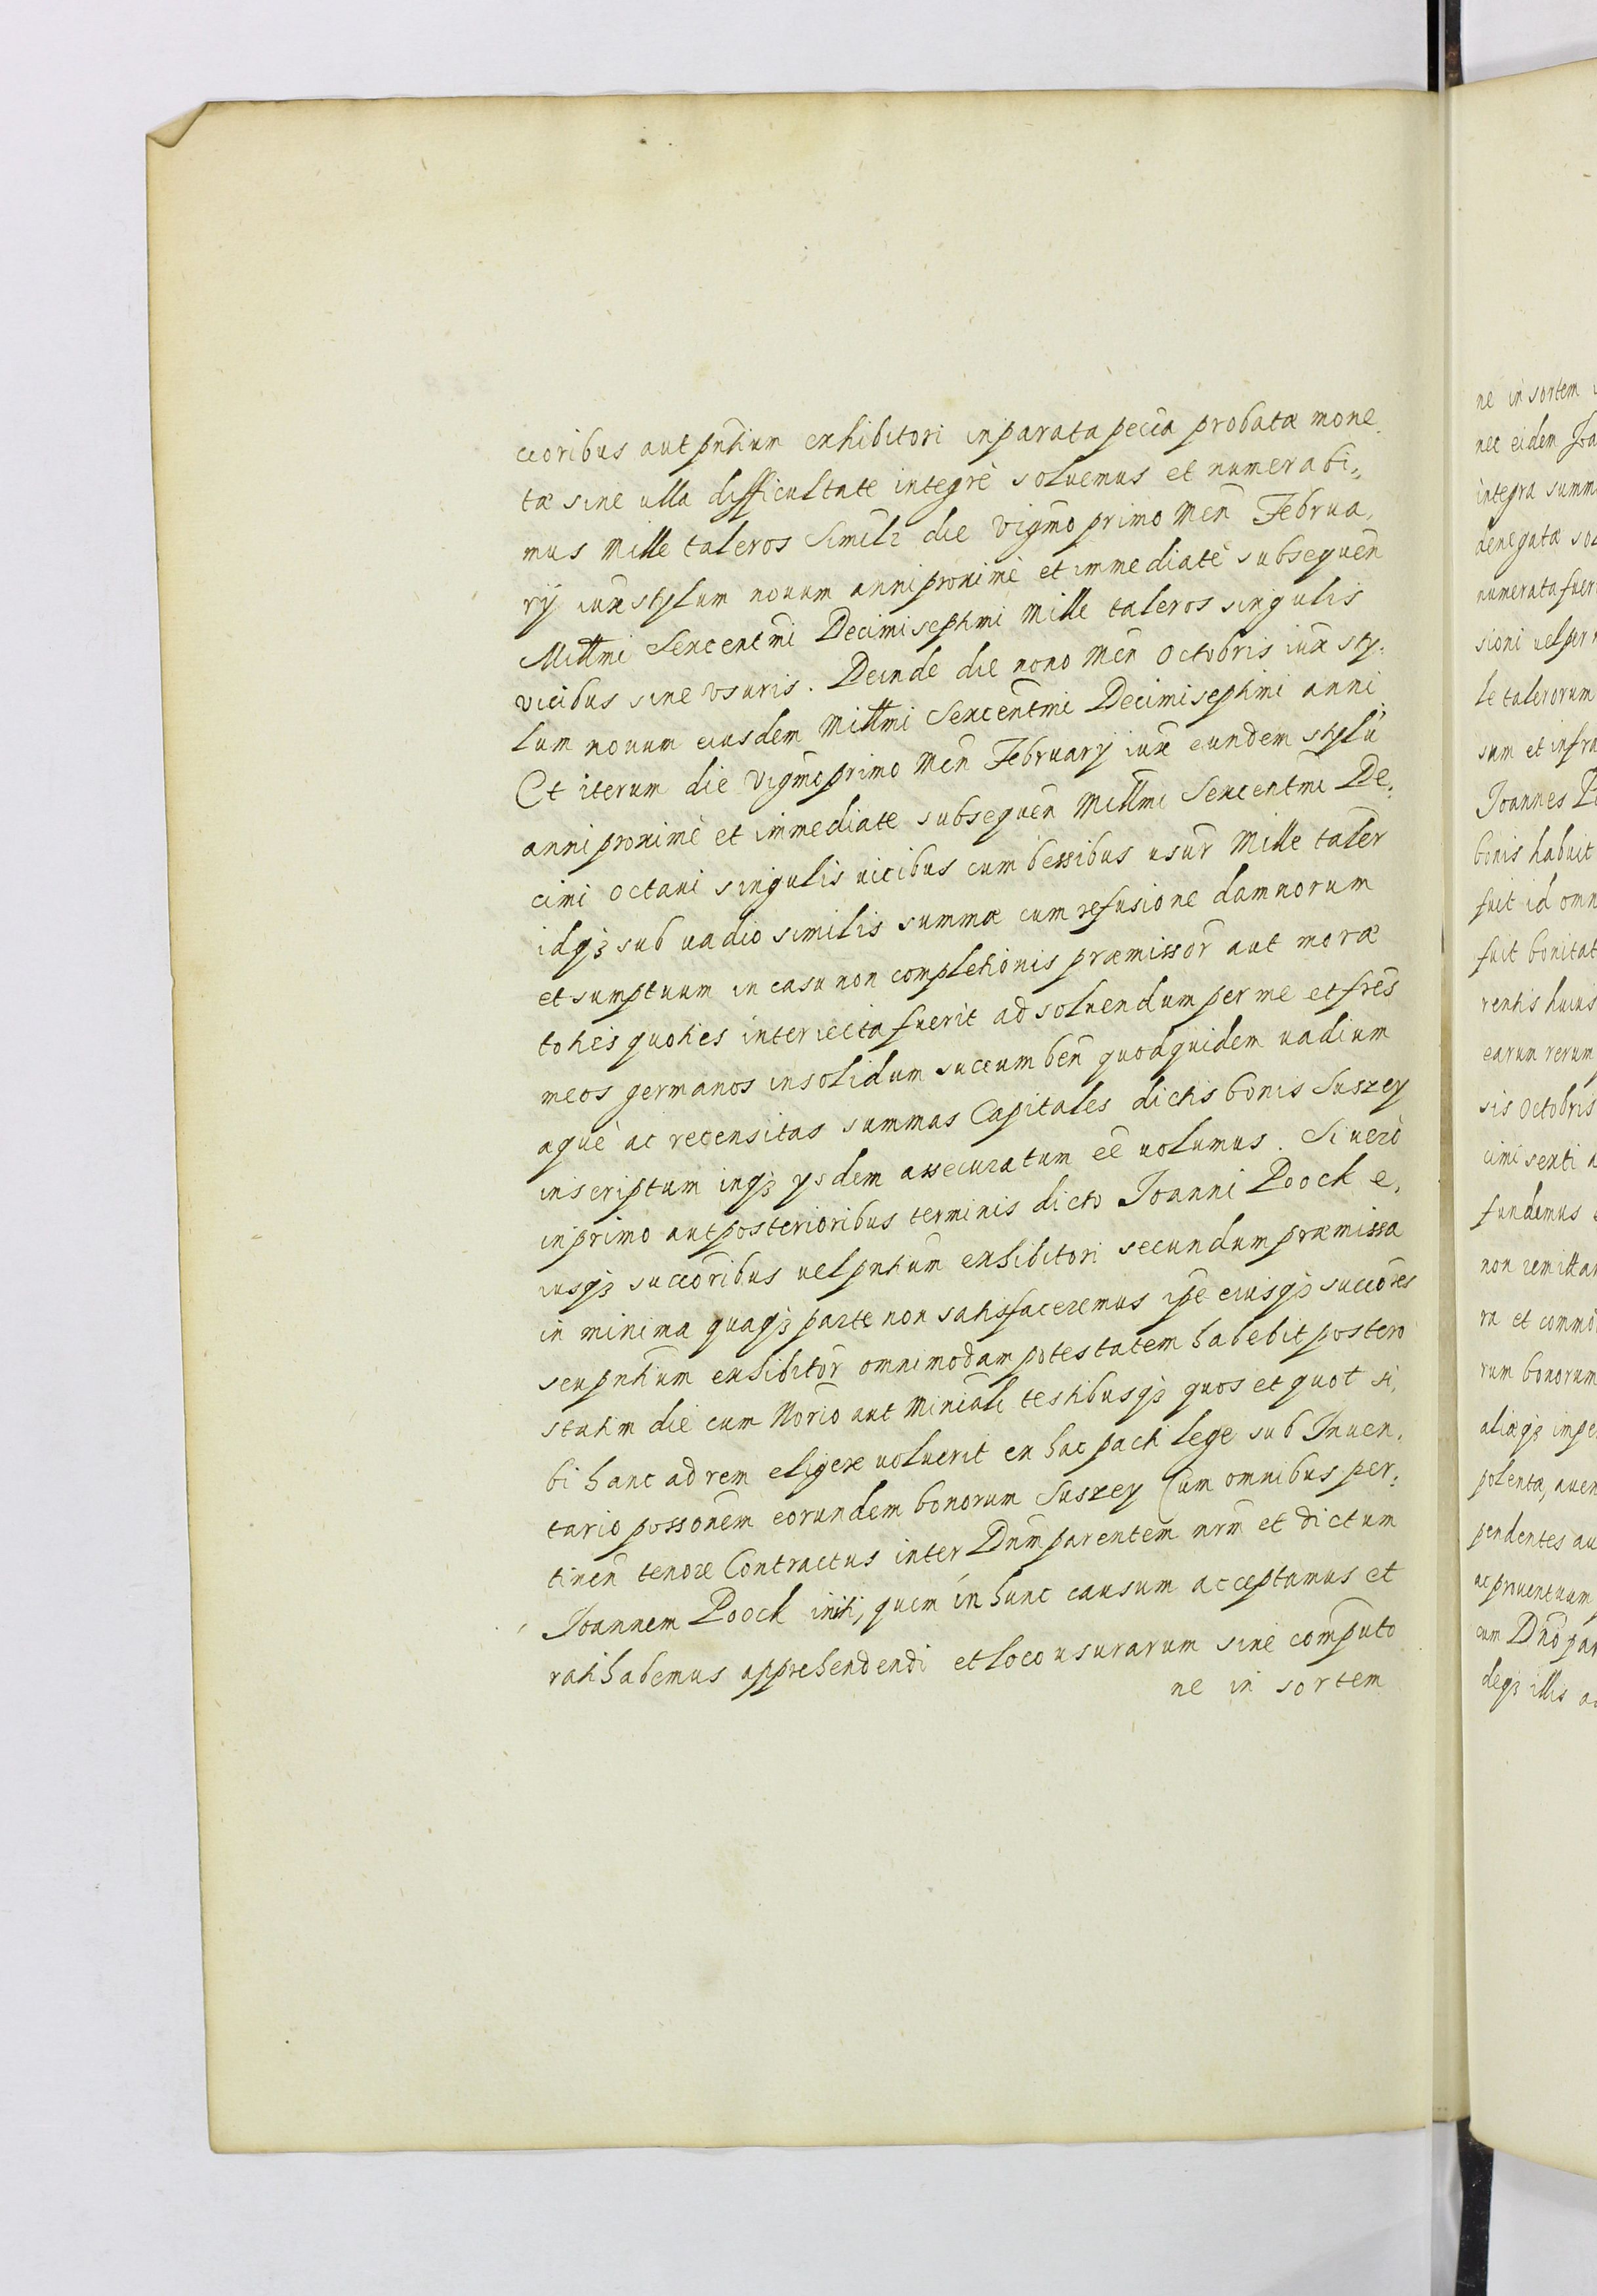 ccoribus aut pn̄tium exhibitori in parata pec̄cia probatæ mone
tæ sine ulla difficultate integrè soluemus et numerabi,
mus Mille taleros Simili die Vigm̄o primo Men̄ Februa,
rÿ iux̄ stylum nouum anni proximè et immediatè subsequen̄
Millm̄i Sexcentm̄i Decimi septimi Mille taleros singulis
vicibus sine vsuris. Deinde die nono Men̄ Octobris iux̄ sty,
lum nouum eiusdem Millm̄i Sexcentm̄i Decimi septimi anni
Et iterum die Vigm̄o primo Men̄ Februarÿ iux̄ eundem stylū
anni proximè et immediate subsequen̄ Millm̄i Sexcentm̄i De,
cimi Octaui singulis uicibus cum bessibus usur̄ Mille taler̄
idqȝ sub uadio similis summæ cum refusione damnorum
et sumptuum in casu non completionis præmissor̄ aut moræ
toties quoties interiecta fuerit ad soluendum per me et fr̄es
meos germanos in solidum succumben̄ quod quidem uadium
æquè ac recensitas summas Capitales dictis bonis Suszey
inscriptum inqȝ ysdem assecuratum eē uolumus. Si uerò
in primo aut posterioribus terminis dicto Joanni Poock e,
iusqȝ succōribus uel pn̄tium exhibitori secundum præmissa
in minima quaqȝ parte non satisfaceremus ip̄e eiusqȝ succōres
seu pn̄tium exhibitor̄ omnimodam potestatem habebit postero
statim die cum Nor̄io aut Ministeriali testibusqȝ quos et quot si,
bi hanc ad rem eligere uoluerit ex hac pacti lege sub Inuen,
tario posson̄em eorundem bonorum Suszey Cum omnibus per,
tinen̄ tenore Contractus inter Dn̄m parentem nr̄m et dictum
Joannem Poock initi, quem in hunc causum acceptamus et
ratihabemus apprehendendi et loco usurarum sine computo
ne in sortem
ne in sortem
nec eidem Joa
integra summ
denegata
numerata fuer
sioni uel per
le talerorum
sum et infra
Joannes
bonis habuit
fuit id omn
fuit bonitat
rentis huius
earum rerum
sis Octobris
cimi sexti
fundemus
non remittam
ra et commo
rum bonorum
aliæqȝ impe
polenta, auen
pendentes au
ac prouentuum
cum Dn̄o par
deqȝ illis